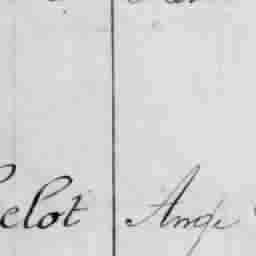 elot Ange